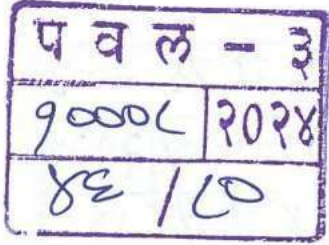 प व ल - ३
१०००८ २०२४
४६ / ८०